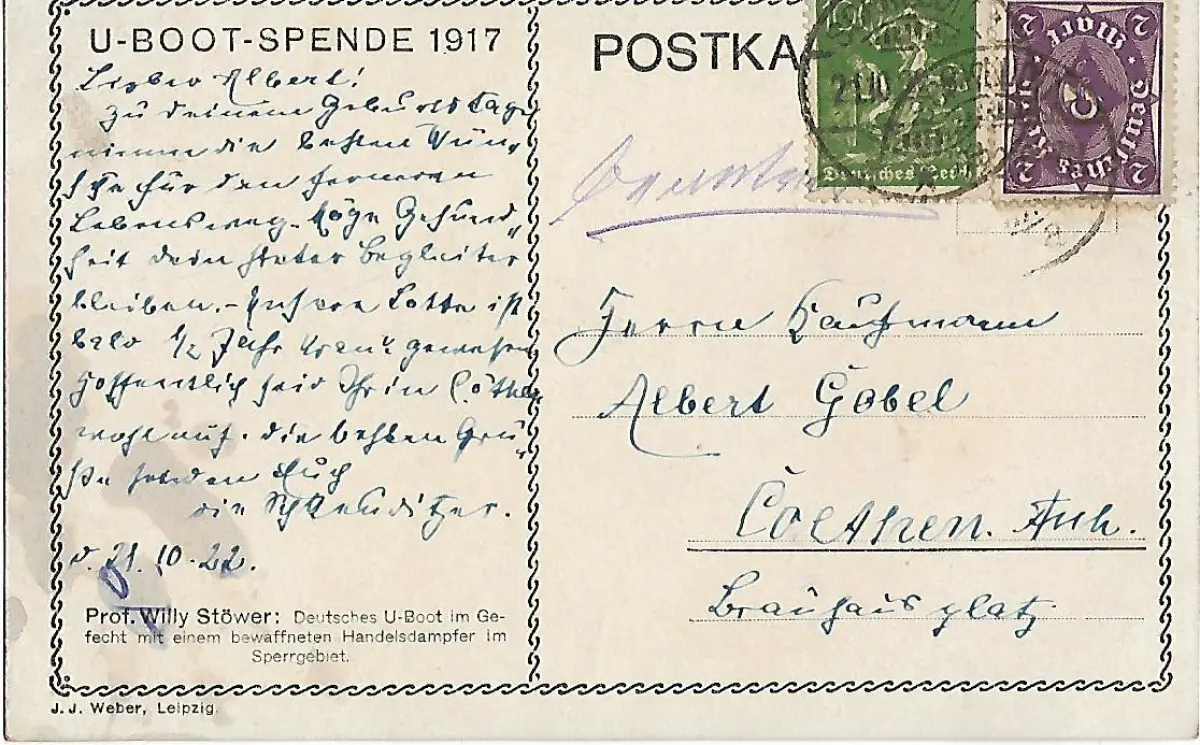 U-BOOT-SPENDE 1917
Lieber Albert!
Zu deinem Geburtstage
nimm die besten Wün-
sche für den ferneren
Lebensweg. Möge Gesund-
heit dein steter Begleiter
bleiben.- Unsere Lotte ist
bald 1/2 Jahr krank gewesen
Hoffentlich seid Ihr in Cöthen
wohlauf. Die besten Grü-
ße senden Euch
die Schkeuditzer.
d. 21.10.22.
Prof. Willy Stöwer: Deutsches U-Boot im Ge-
fecht mit einem bewaffneten Handelsdampfer im
Sperrgebiet.
J. J. Weber, Leipzig.
POSTKA
Deutsches Reich
2 2
Mark
Deutsches Reich
2 2
21.10.22
Herrn Kaufmann
Albert Göbel
Coethen. Anh.
Brauhausplatz.